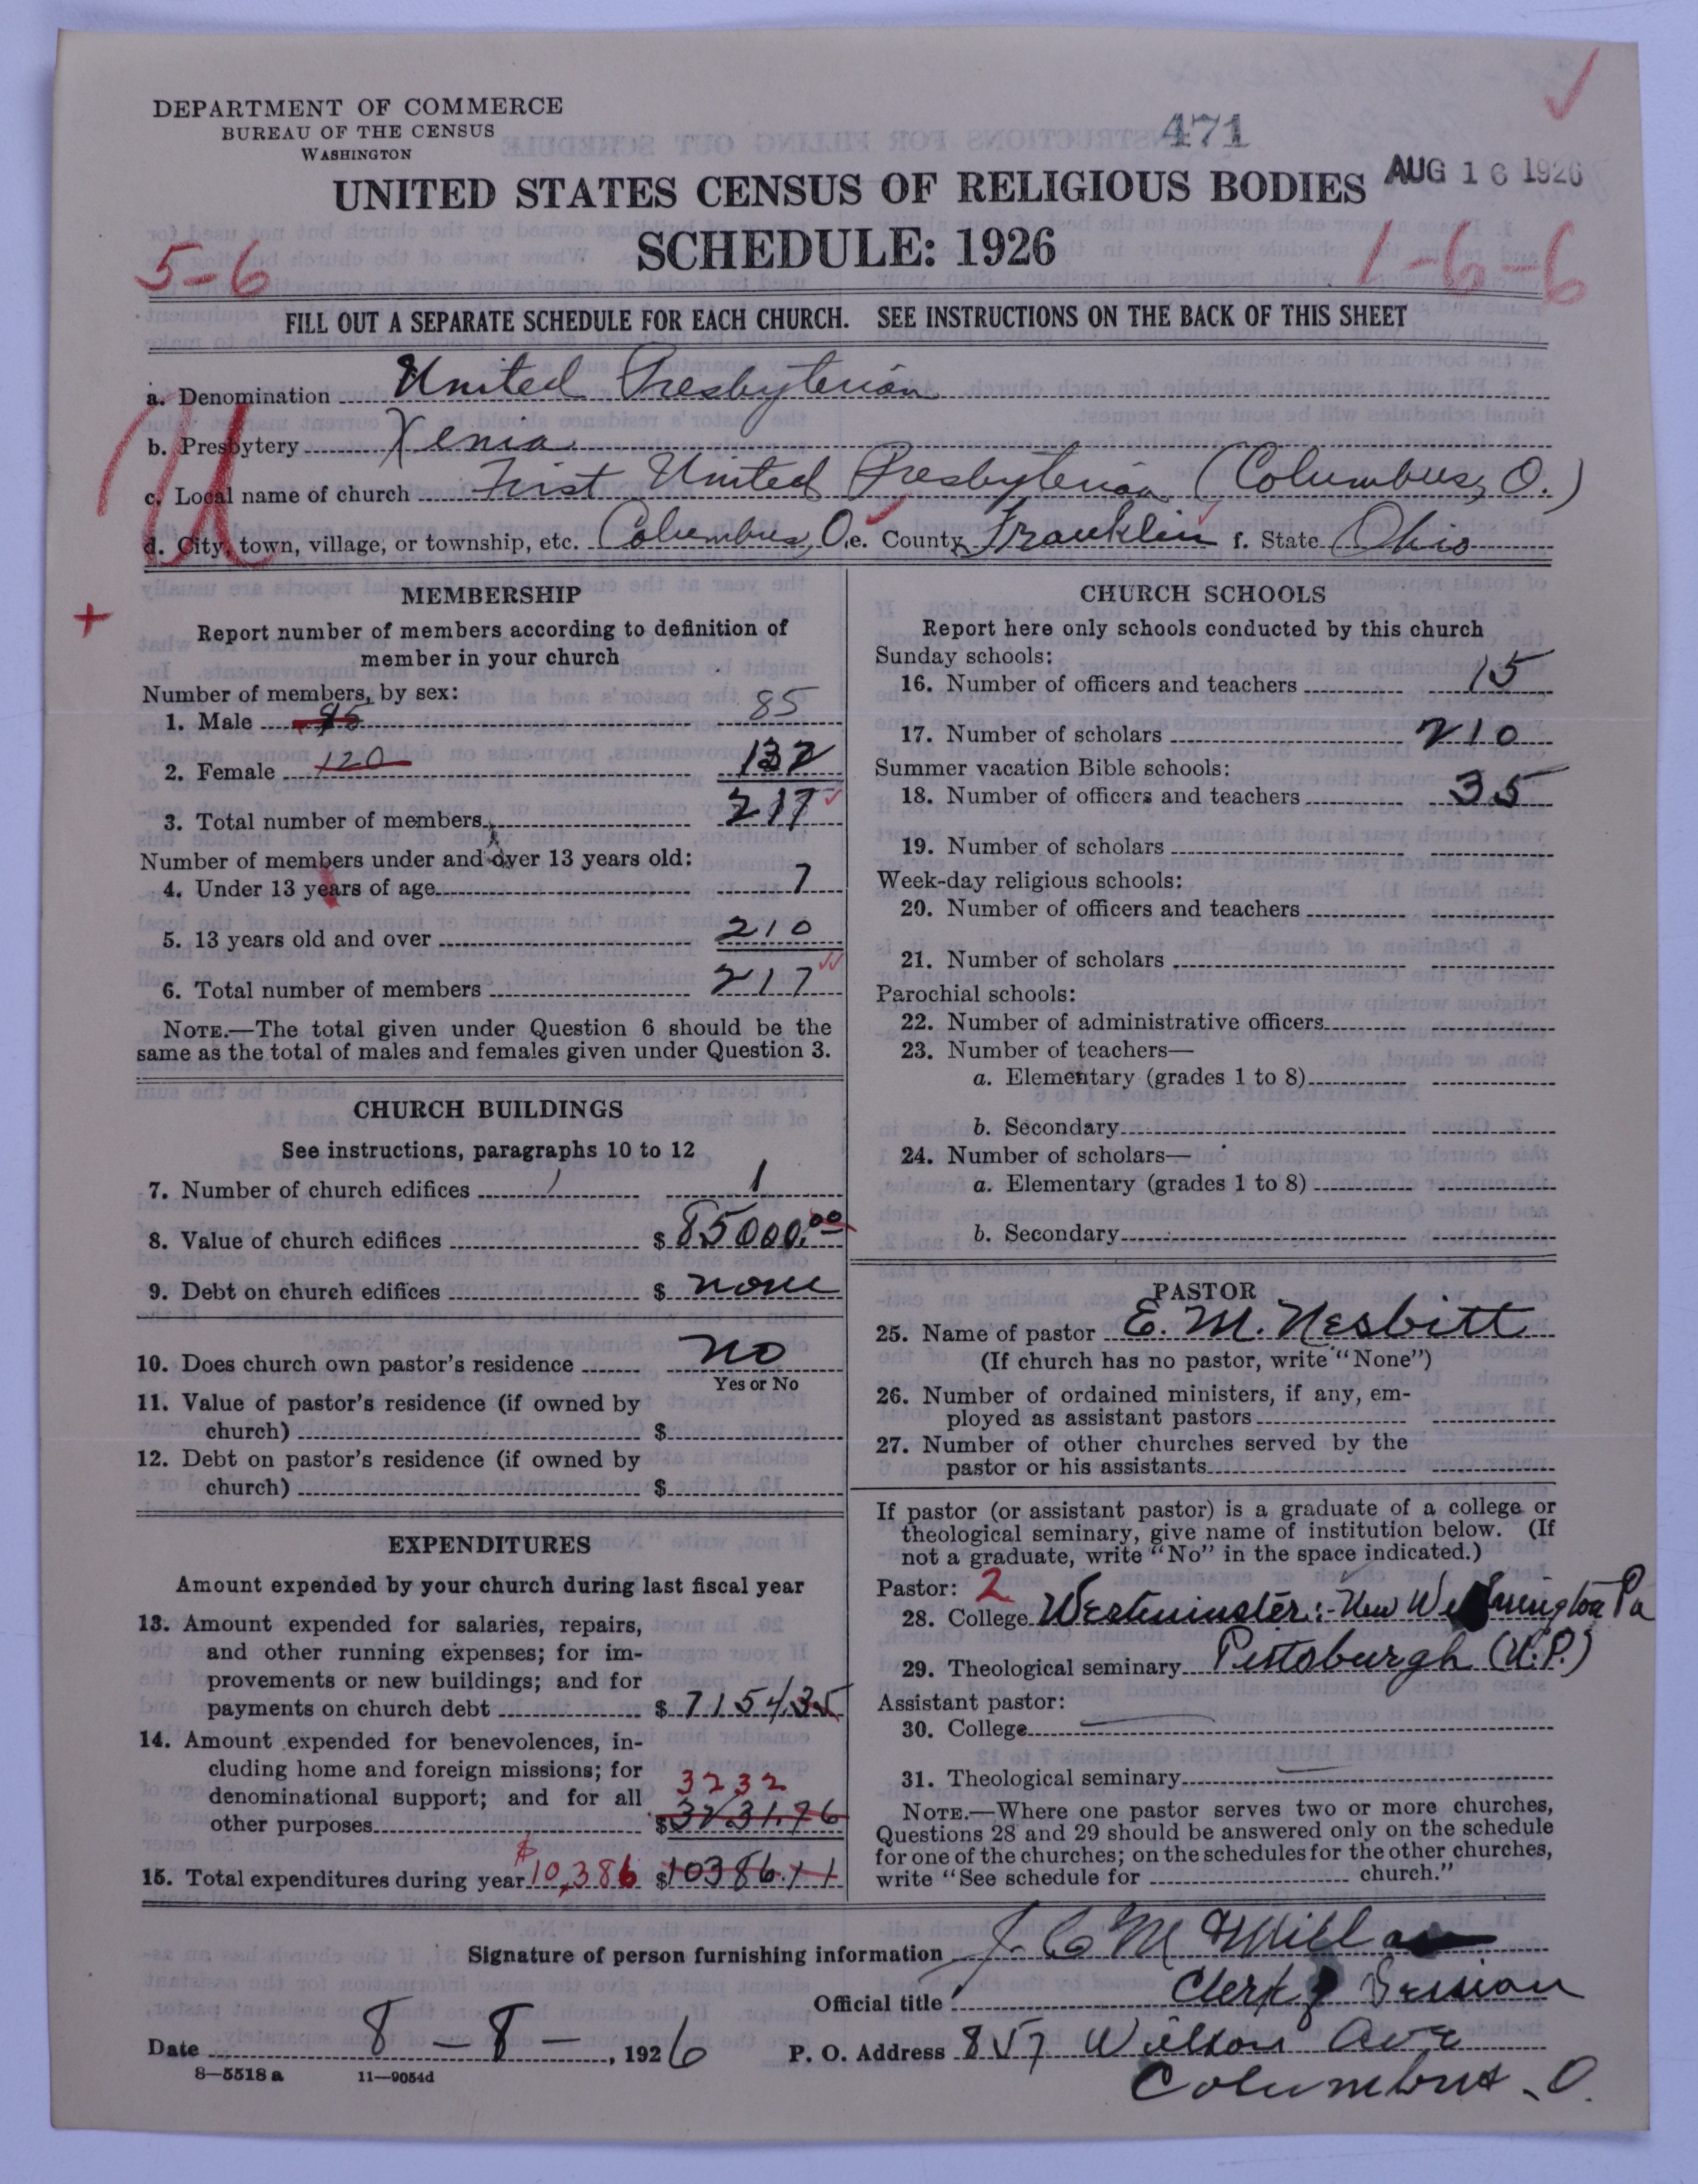 DEPARTMENT OF COMMERCE
BUREAU OF THE CENSUS
WASHINGTON
471
AUG 16 1926
UNITED STATES CENSUS OF RELIGIOUS BODIES
SCHEDULE: 1926
5-6
1-6-6
FILL OUT A SEPARATE SCHEDULE FOR EACH CHURCH. SEE INSTRUCTIONS ON THE BACK OF THIS SHEET
a. Denomination United Presbyterian
b. Presbytery Xenia
c. Local name of church First United Presbyterian (Columbus, O.)
d. City, town, village, or township, etc. Columbus, O. e. County Franklin f. State Ohio
MEMBERSHIP
Report number of members according to definition of
member in your church
Number of members, by sex:
1. Male 85
2. Female 120 132
3. Total number of members 217
Number of members under and over 13 years old:
4. Under 13 years of age 7
5. 13 years old and over 210
6. Total number of members 217
NOTE.—The total given under Question 6 should be the
same as the total of males and females given under Question 3.
CHURCH BUILDINGS
See instructions, paragraphs 10 to 12
7. Number of church edifices 1 1
8. Value of church edifices $ 85000.00
9. Debt on church edifices $ none
10. Does church own pastor's residence no
Yes or No
11. Value of pastor's residence (if owned by
church) $
12. Debt on pastor's residence (if owned by
church) $
EXPENDITURES
Amount expended by your church during last fiscal year
13. Amount expended for salaries, repairs,
and other running expenses; for im-
provements or new buildings; and for
payments on church debt $ 7154.35
14. Amount expended for benevolences, in-
cluding home and foreign missions; for
denominational support; and for all 3232
other purposes $3231.76
15. Total expenditures during year $10,386 $10386.11
CHURCH SCHOOLS
Report here only schools conducted by this church
Sunday schools:
16. Number of officers and teachers 15
17. Number of scholars 210
Summer vacation Bible schools:
18. Number of officers and teachers 35
19. Number of scholars
Week-day religious schools:
20. Number of officers and teachers
21. Number of scholars
Parochial schools:
22. Number of administrative officers
23. Number of teachers—
a. Elementary (grades 1 to 8)
b. Secondary
24. Number of scholars—
a. Elementary (grades 1 to 8)
b. Secondary
PASTOR
25. Name of pastor E. M. Nesbitt
(If church has no pastor, write "None")
26. Number of ordained ministers, if any, em-
ployed as assistant pastors
27. Number of other churches served by the
pastor or his assistants
If pastor (or assistant pastor) is a graduate of a college or
theological seminary, give name of institution below. (If
not a graduate, write "No" in the space indicated.)
Pastor: 2
28. College Westminster: New Wilmington Pa
29. Theological seminary Pittsburgh (U.P.)
Assistant pastor:
30. College
31. Theological seminary
NOTE.—Where one pastor serves two or more churches,
Questions 28 and 29 should be answered only on the schedule
for one of the churches; on the schedules for the other churches,
write "See schedule for church."
Signature of person furnishing information J. C. McMillan
Official title Clerk of Session
Date 8 - 8 - , 1926
P. O. Address 857 Wilson Ave
Columbus, O.
8—5518 a 11—9054d